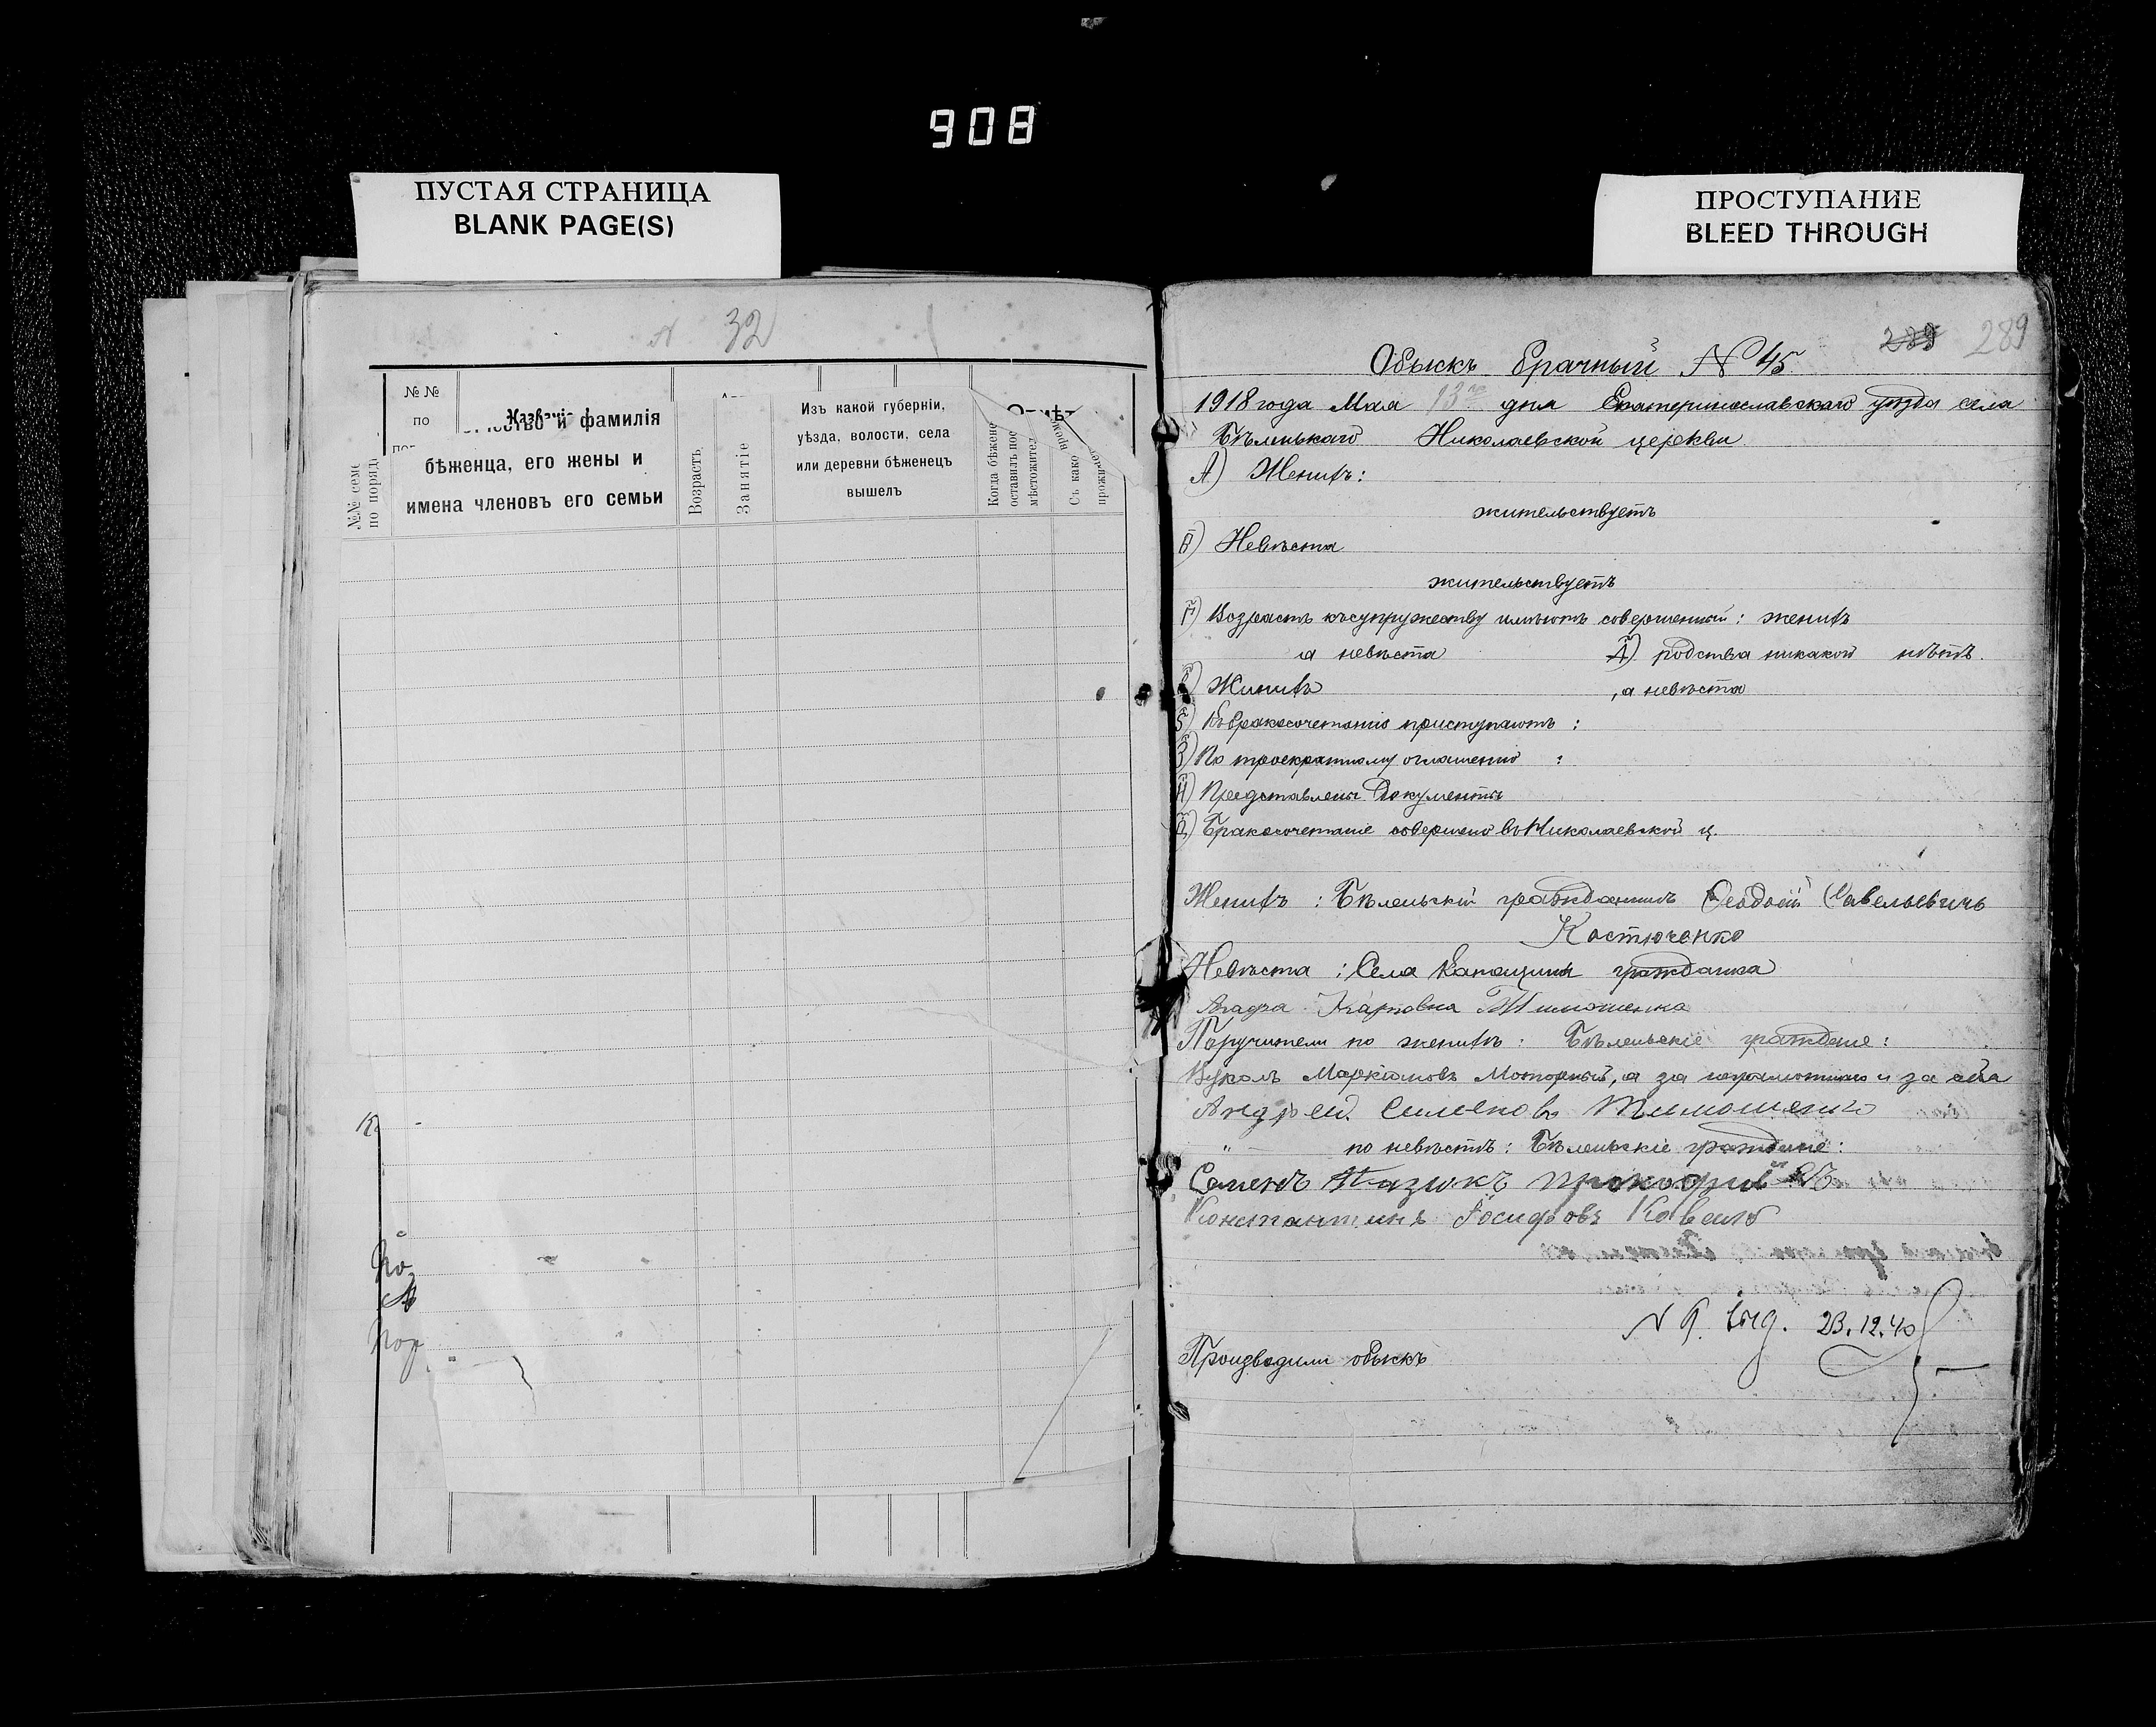 908
ПУСТАЯ СТРАНИЦА
BLANK PAGE(S)
ПРОСТУПАНИЕ
BLEED THROUGH
N 32
№№ семе
по поряд
№ №
по
пор
Названіе
и фамилія
бѣженца, его жены и
имена членовъ его семьи
Возрастъ
Занятіе
Изъ какой губерніи,
уѣзда, волости, села
или деревни бѣженецъ
вышелъ
Когда бѣжене
оставилъ пос
мѣстожител
Съ како
врем
прожи
289 289
Обыскъ брачный N 45
1918 года Мая 13 го дня Екатеринославскаго уѣзда села
Бѣленькаго Николаевской церкви
А) Женихъ:
жительствуетъ
В) Невѣста
жительствуетъ
Г) Возрастъ къ супружеству имѣютъ совершенный: женихъ
а невѣста Д) родства никакого нѣтъ.
Женихъ , а невѣста
Къ бракосочетанію приступаютъ:
По троекратному оглашенію :
И) Представлены документы
Бракосочетаніе совершено въ Николаевской ц.
Женихъ: Бѣленьскій гражданинъ Ѳеодосій Савельевичъ
Костюченко
Невѣста: Села гражданка
Агафа Карповна Тимошенко
Поручители по женихѣ: Бѣленьскіе граждане:
Вуколъ Маркіановъ Моторный, а за неграмотнаго и за себя
Андрей Семеновъ Тимошенко
" по невѣстѣ: Бѣленьскіе граждане:
Семенъ
Константинъ Іосифовъ
N 9. выд. 23.12.40
Производили обыскъ